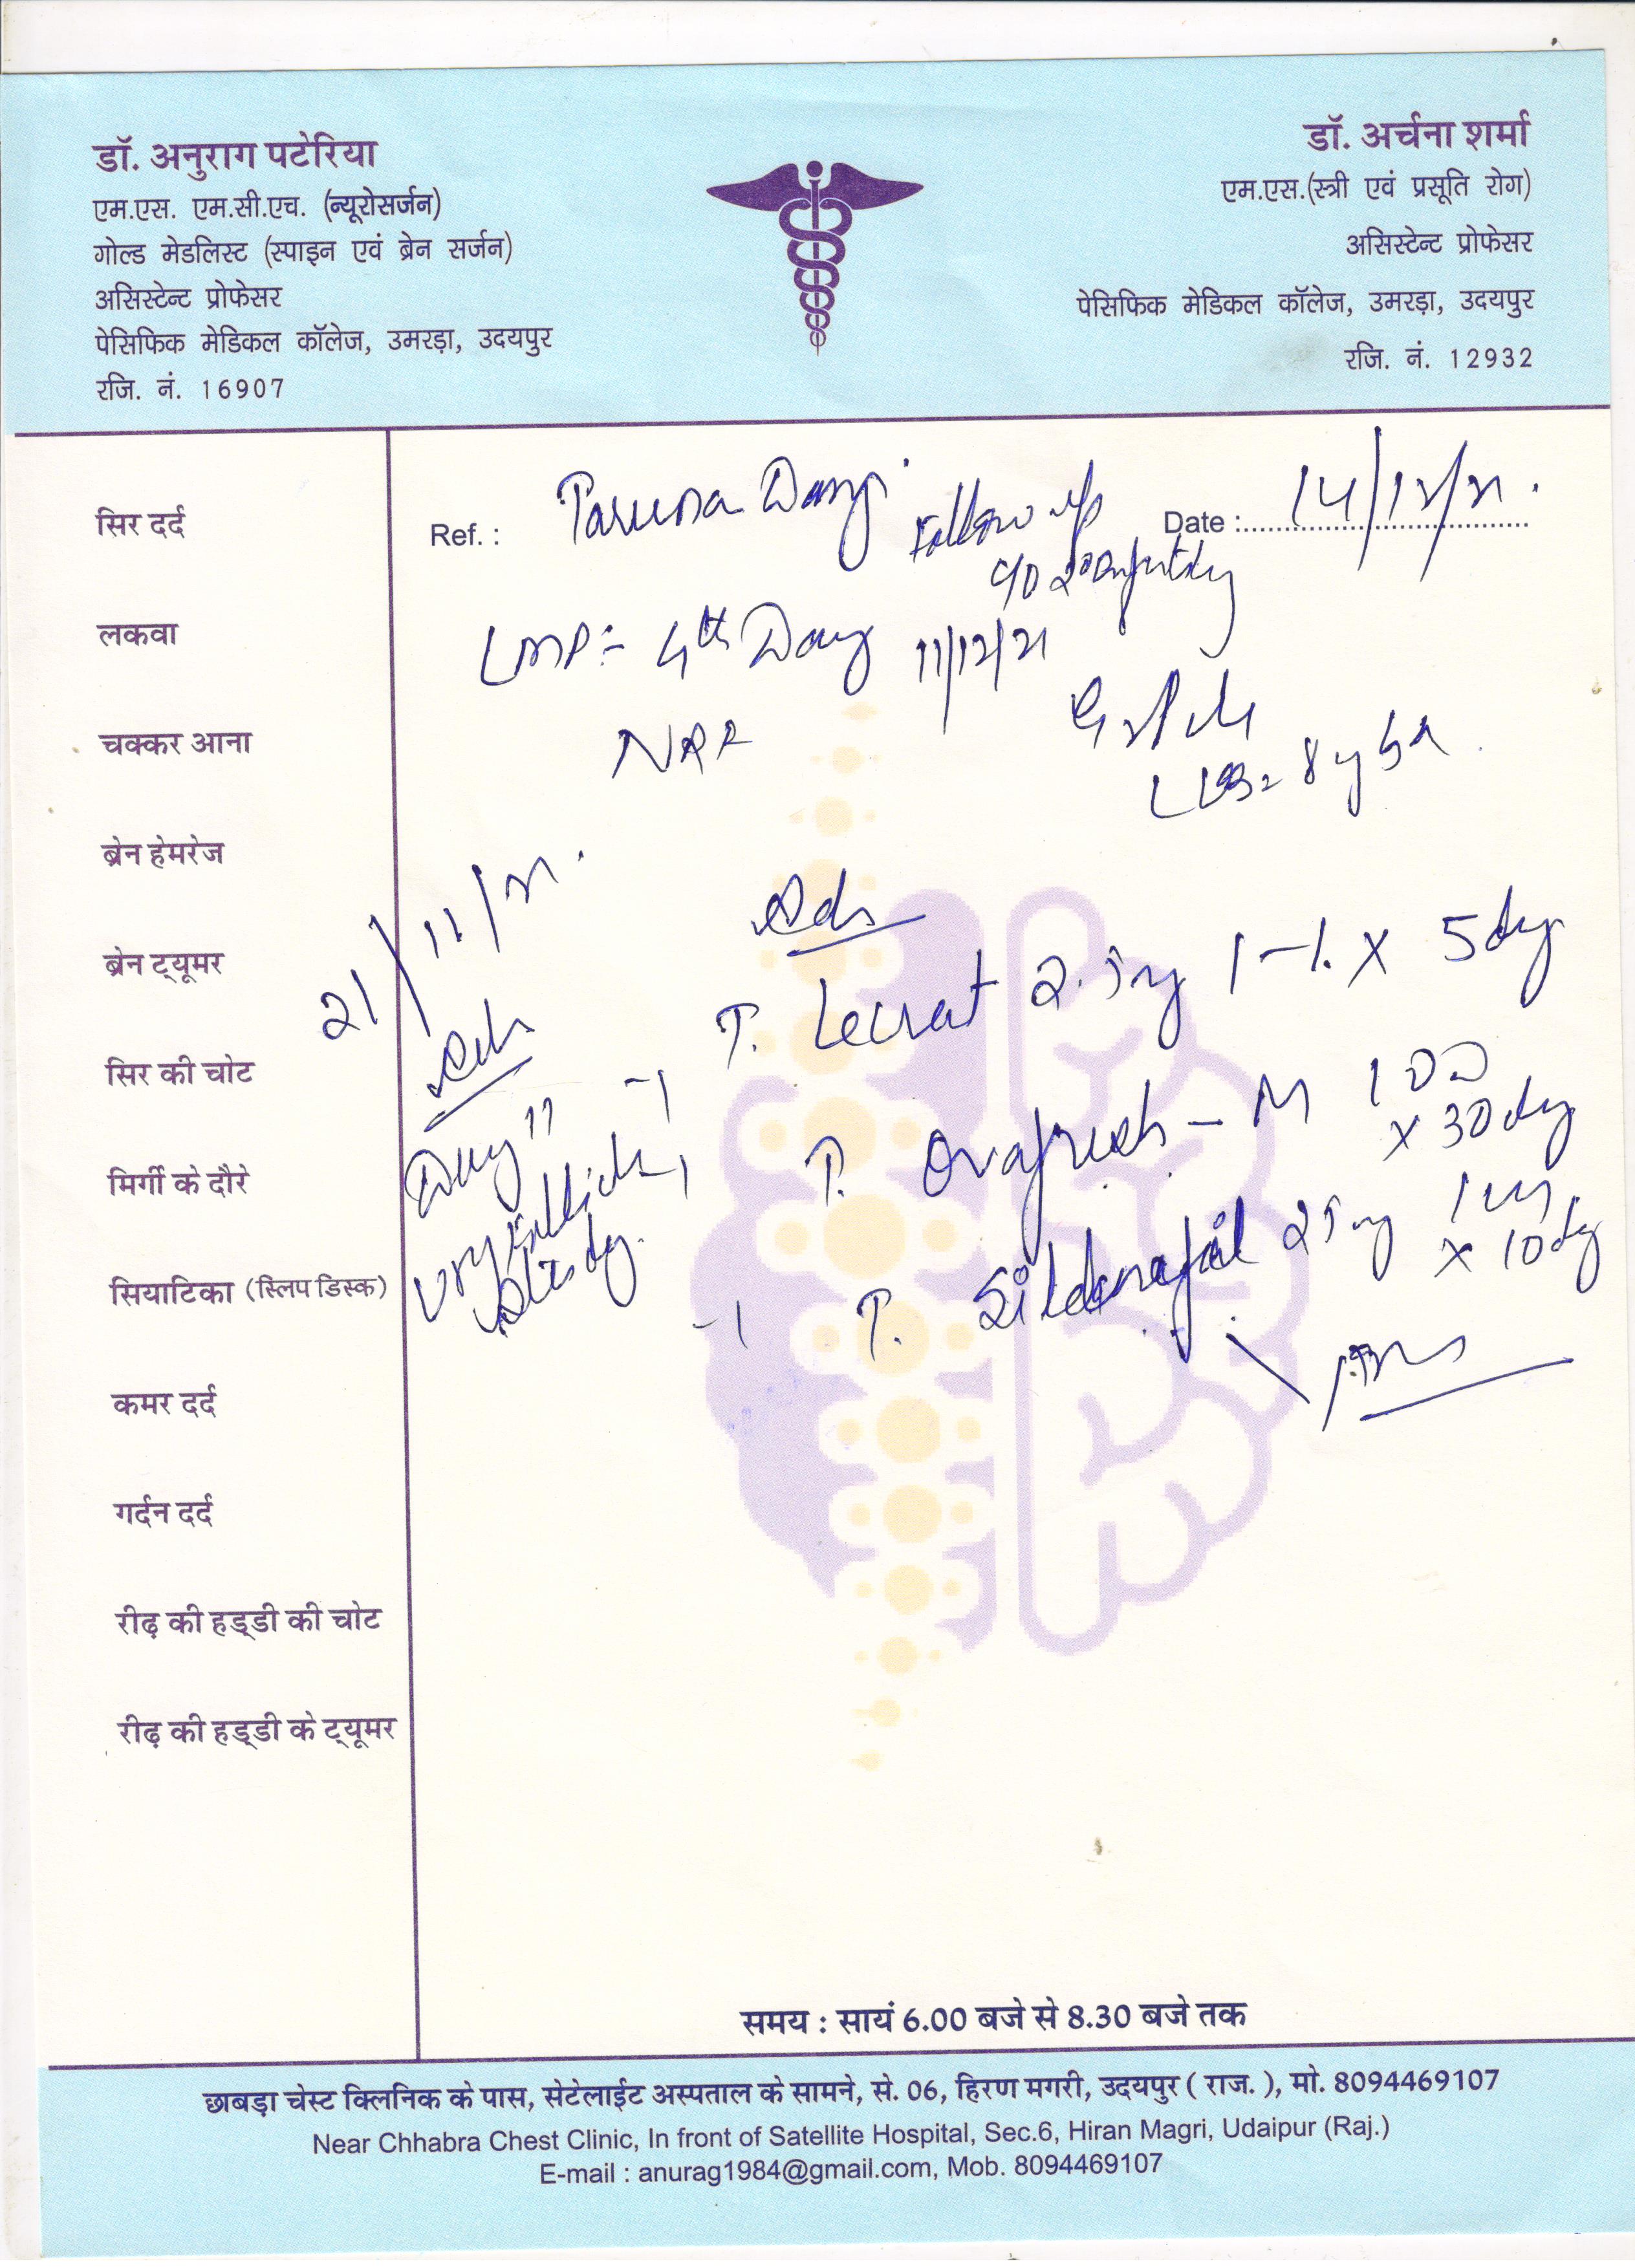 डॉ. अनुराग पटेरिया
एम.एस. एम.सी.एच. (न्यूरोसर्जन)
गोल्ड मेडलिस्ट (स्पाइन एवं ब्रेन सर्जन)
असिस्टेन्ट प्रोफेसर
पेसिफिक मेडिकल कॉलेज, उमरड़ा, उदयपुर
रजि. नं. 16907
डॉ. अर्चना शर्मा
एम.एस.(स्त्री एवं प्रसूति रोग)
असिस्टेन्ट प्रोफेसर
पेसिफिक मेडिकल कॉलेज, उमरड़ा, उदयपुर
रजि. नं. 12932
सिर दर्द
लकवा
चक्कर आना
ब्रेन हेमरेज
ब्रेन ट्यूमर
सिर की चोट
मिर्गी के दौरे
सियाटिका (स्लिप डिस्क)
कमर दर्द
गर्दन दर्द
रीढ़ की हड्डी की चोट
रीढ़ की हड्डी के ट्यूमर
Ref. :
Follow up
Date : 14/12/21
LMP:- 4th Day 11/12/21
21/11/21
Adv
Day 11
Adv
T. Lecrat 2.5mg 1-1 x 5 day
T. Ovafresh - M 1 OD
x 30 day
T. Sildenafil 25mg
x 10 day
समय : सायं 6.00 बजे से 8.30 बजे तक
छाबड़ा चेस्ट क्लिनिक के पास, सेटेलाईट अस्पताल के सामने, से. 06, हिरण मगरी, उदयपुर ( राज. ), मो. 8094469107
Near Chhabra Chest Clinic, In front of Satellite Hospital, Sec.6, Hiran Magri, Udaipur (Raj.)
E-mail : anurag1984@gmail.com, Mob. 8094469107